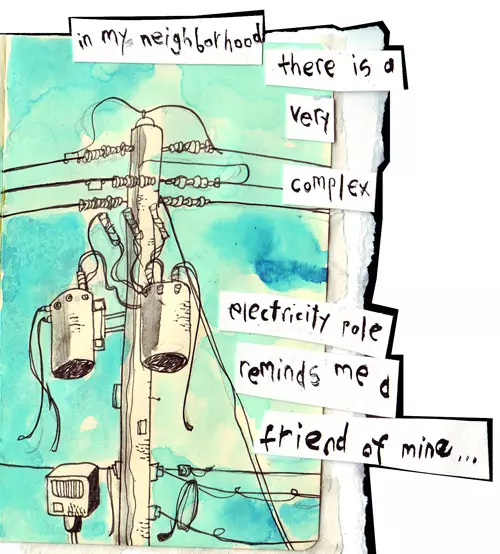 in my neighborhood
there is a
very
complex
electricity pole
reminds me a
friend of mine...